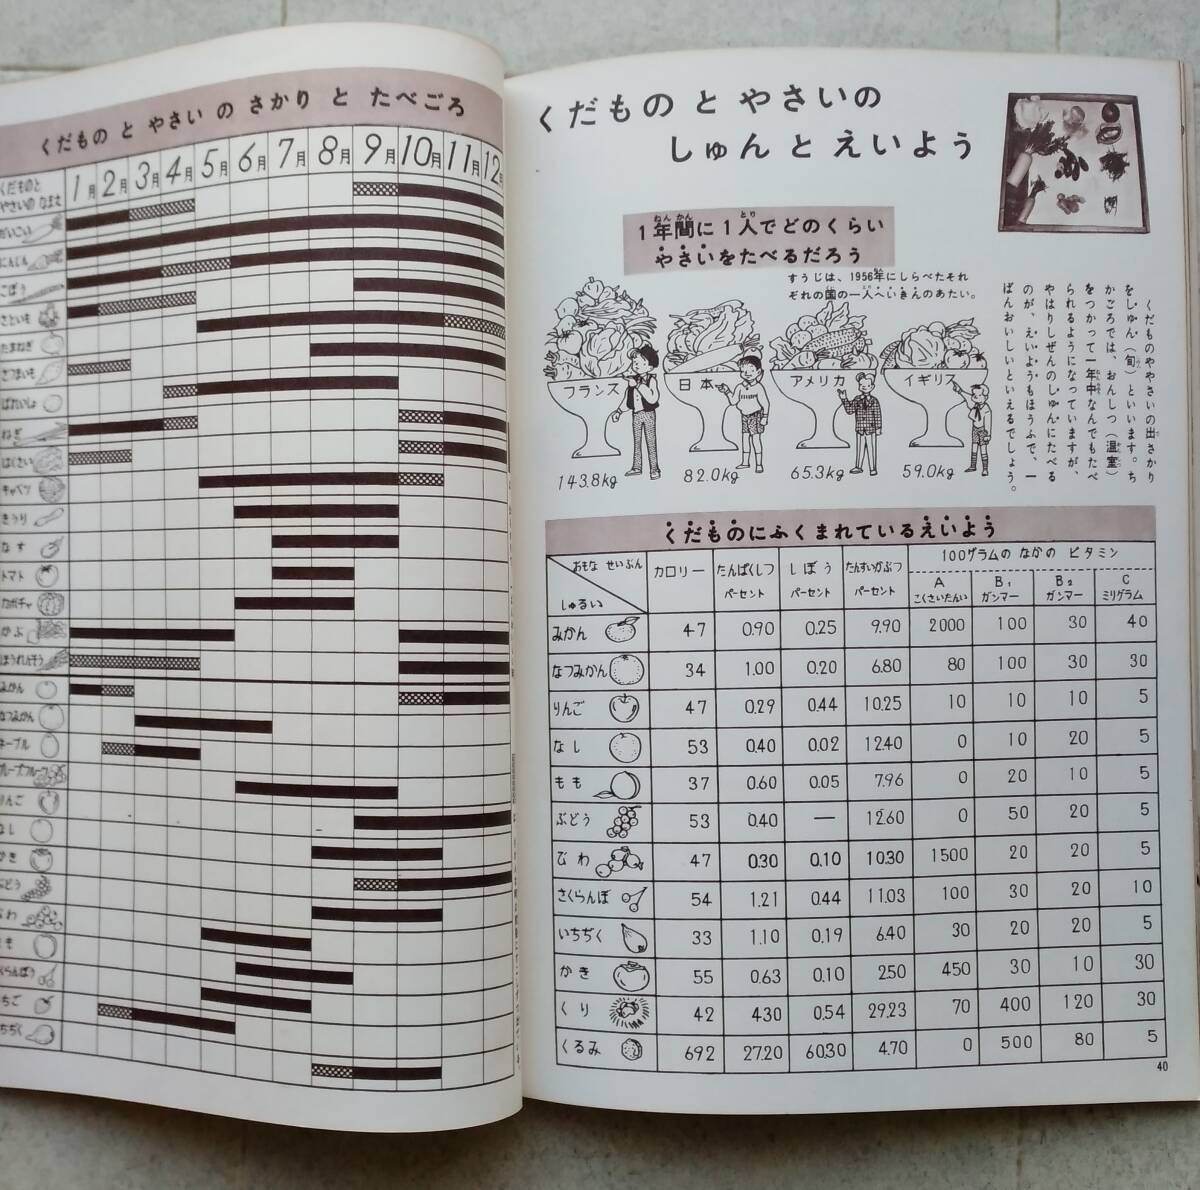 くだもの と やさい の さかり と たべごろ
くだものと
やさいの なまえ
1月 2月 3月 4月 5月 6月 7月 8月 9月 10月 11月 12月
だいこん
にんじん
ごぼう
さといも
たまねぎ
さつまいも
ばれいしょ
ねぎ
はくさい
キャベツ
きうり
なす
トマト
カボチャ
かぶ
ほうれんそう
みかん
なつみかん
ネーブル
グレープフルーツ
りんご
なし
かき
ぶどう
びわ
もも
さくらんぼう
いちご
いちぢく
くだもの と やさいの
しゅん と えいよう
1年間に1人でどのくらい
ねんかん とり
やさいをたべるだろう
すうじは、1956年にしらべたそれ
ぞれの国の一人へいきんのあたい。
フランス 日本 アメリカ イギリス
143.8kg 82.0kg 65.3kg 59.0kg
くだものややさいの出さかり
をしゅん(旬)といいます。ち
かごろでは、おんしつ(温室)
をつかって一年中なんでもたべ
られるようになっていますが、
やはりしぜんのしゅんにたべる
のが、えいようもほうふで、一
ばんおいしいといえるでしょう。
くだものにふくまれているえいよう
おもな せいぶん
しゅるい
カロリー たんぱくしつ パーセント しぼう パーセント たんすいかぶつ パーセント
100グラムの なかの ビタミン
A こくさいたんい B1 ガンマー B2 ガンマー C ミリグラム
みかん 47 0.90 0.25 9.90 2000 100 30 40
なつみかん 34 1.00 0.20 6.80 80 100 30 30
りんご 47 0.29 0.44 10.25 10 10 10 5
なし 53 0.40 0.02 12.40 0 10 20 5
もも 37 0.60 0.05 7.96 0 20 10 5
ぶどう 53 0.40 — 12.60 0 50 20 5
びわ 47 0.30 0.10 10.30 1500 20 20 5
さくらんぼ 54 1.21 0.44 11.03 100 30 20 10
いちぢく 33 1.10 0.19 6.40 30 20 20 5
かき 55 0.63 0.10 250 450 30 10 30
くり 42 430 0.54 29.23 70 400 120 30
くるみ 692 27.20 60.30 4.70 0 500 80 5
40